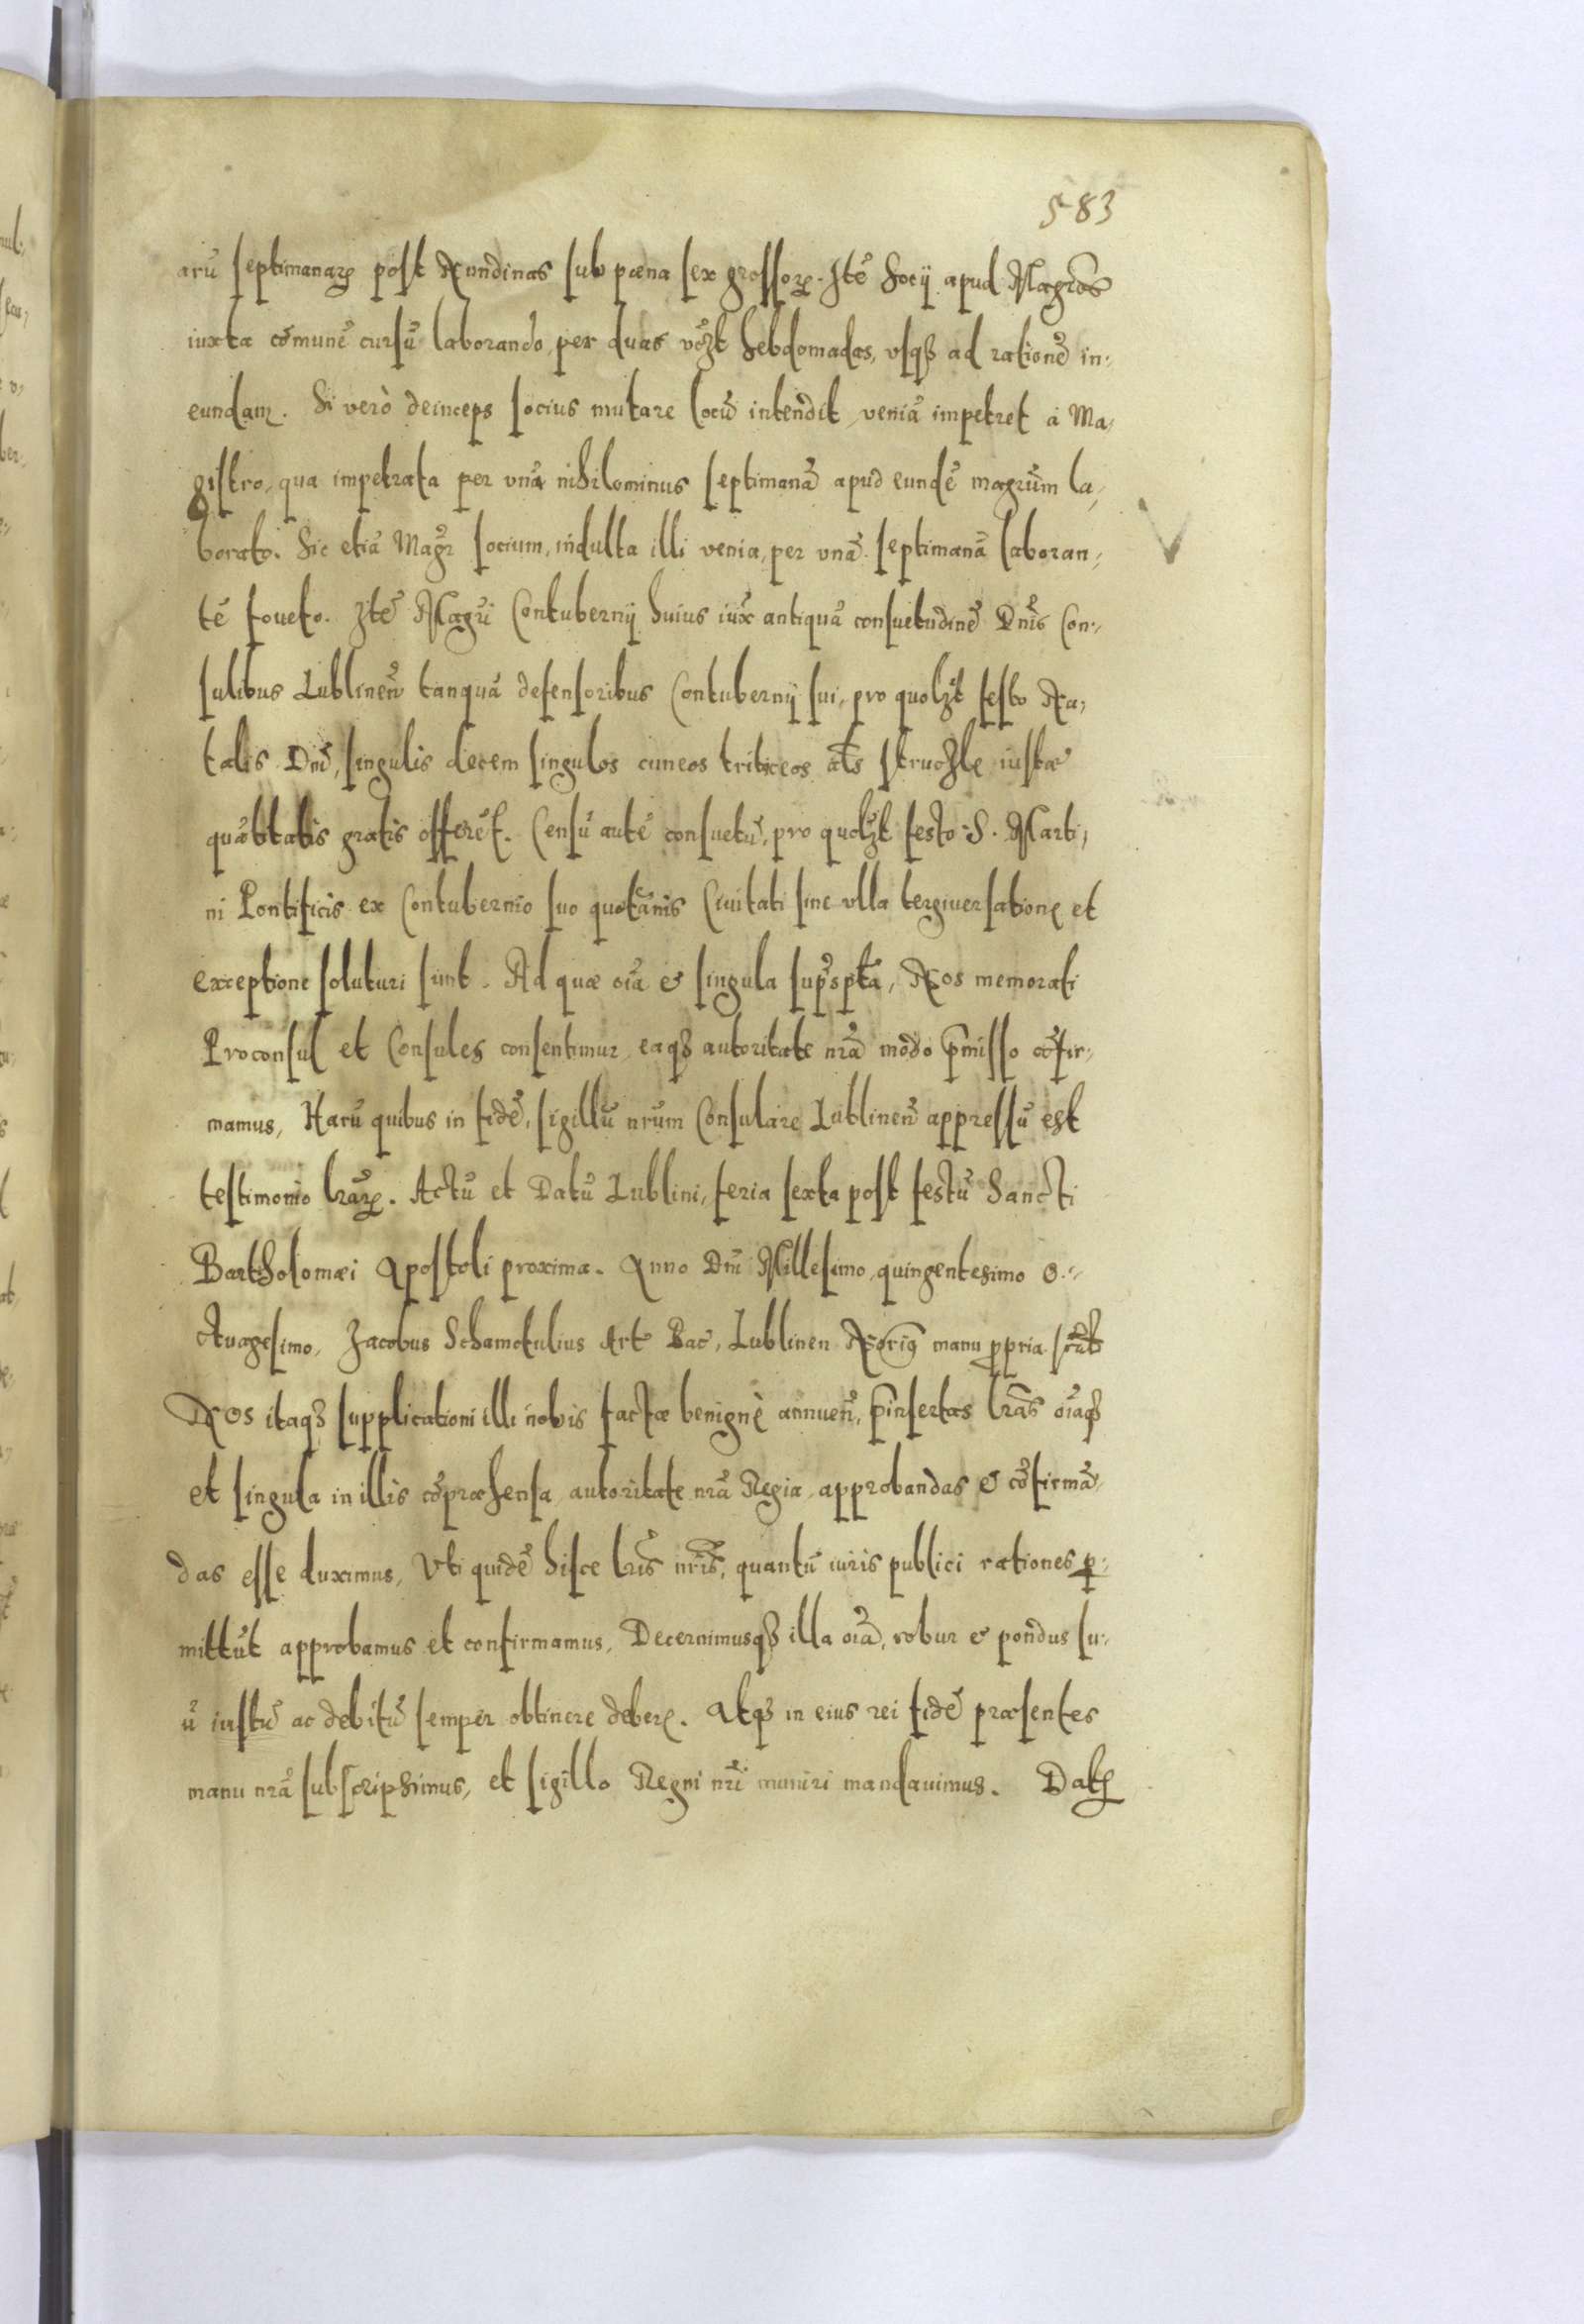 583
arũ septimanarꝫ post Nundinas sub pœna sex grossorꝫ. Itẽ Socij apud Magros
iuxta cõmunẽ cursũ laborando per duas hebdomadas, vsqꝫ ad rationẽ in-
eundam. Si verò deinceps socius mutare locũ intendit, veniã impetret a Ma-
gistro, qua impetrata per vnã nihilominus septimanã apud eundẽ magrũm la-
borato. Sic etiã Magr̃ socium, indulta illi venia, per vnã septimanã laboran-
tẽ foueto. Itẽ Magr̃i Contubernij huius iux̃ antiquã consuetudinẽ Dnĩs Con-
sulibus Lublineñ tanquã defensoribus Contubernij sui, pro quolꝫt festo Na-
talis Dnĩ, singulis decem singulos cuneos triticeos al̃s struczle iustæ
quãtitatis gratis offerẽt. Censũ autẽ consuetũ, pro quolꝫt festo S. Marti-
ni Pontificis ex Contubernio suo quotãnis Ciuitati sine vlla tergiuersatione et
exceptione soluturi sũnt. Ad quæ oĩa & singula sup̃sp̃ta, Nos memorati
Proconsul et Consules consentimur, eaqꝫ autoritate nrã modo p̃misso cõfir-
mamus, Harũ quibus in fidẽ, sigillũ nrũm Consulare Lublineñ appressũ est
testimonio lrãrꝫ. Actũ et Datũ Lublini, feria sexta post festũ Sancti
Bartholomæi Apostoli proxima. Anno Dnĩ Millesimo quingentesimo o-
ctuagesimo, Jacobus Schamotulius Art Bac̃, Lublinen Notriꝰ manu ꝓpria sc̃rit
Nos itaqꝫ supplicationi illi nobis factæ benignè annueñ, p̃insertas lrãs oĩaqꝫ
et singula in illis cõpræhensa autoritate nrã Regia approbandas & cõfirmã-
das esse duximus, Vti quidẽ hisce lrĩs nrĩs, quantũ iuris publici rationes ꝑ-
mittũt approbamus et confirmamus, Decernimusqꝫ illa oĩa, robur & pondus su-
ũ iustũ ac debitũ semper obtinere debere. Atqꝫ in eius rei fidẽ præsentes
manu nrã subscripsimus, et sigillo Regni nrĩ muniri mandauimus. Datꝫ